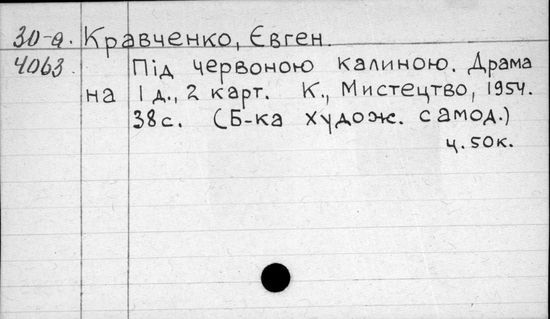 30-а. Кравченко, Євген.
4063. Під червоною калиною. Драма
на 1 д., 2 карт. К., Мистецтво, 1954.
38с. (Б-ка худож. самод.)
ц. 50к.